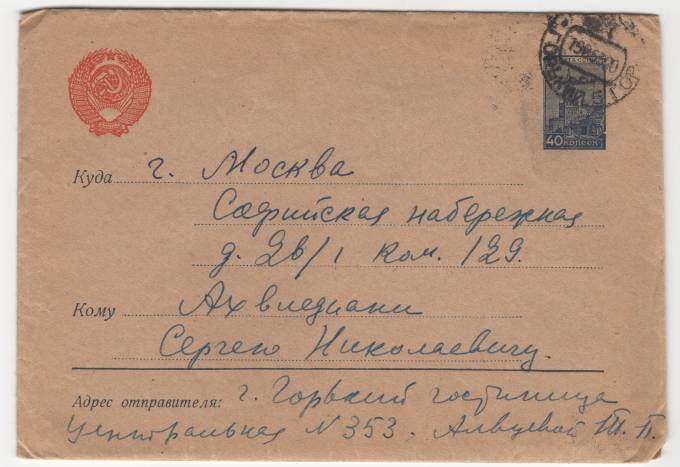 40 КОПЕЕК
Куда г. Москва
Софийская набережная
д. 2в/1 ком. 129.
Кому Ахвледиани
Сергею Николаевичу.
Адрес отправителя: г. Горький гостиница
Центральная N 353. Алвцевой Т. П.